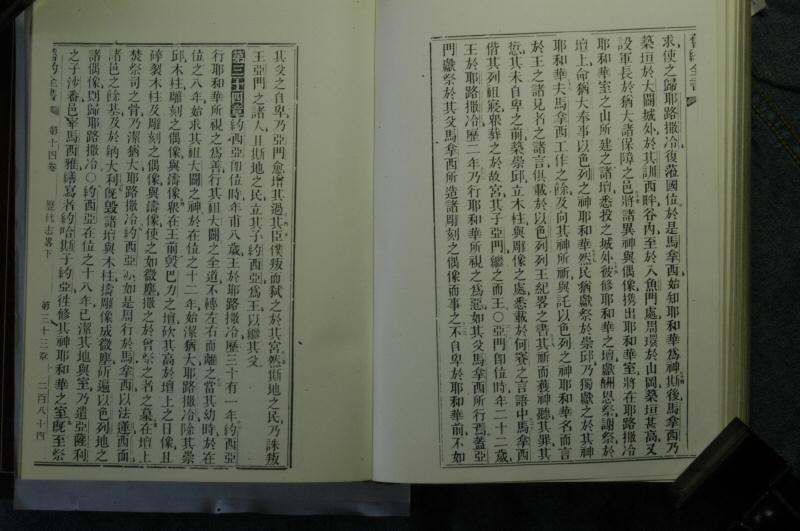 舊約全書
求使之歸耶路撒冷復蒞國位於是馬拿西始知耶和華爲神斯後馬拿西乃
築垣於大闢城外於其訓西畔谷內至於入魚門處周環於山岡築垣甚高又
設軍長於猶大諸保障之邑將諸異神與偶像攜出耶和華室將在耶路撒冷
耶和華室之山所建之諸壇悉投之城外彼修耶和華之壇獻酬恩祭謝祭於
壇上命猶大奉事以色列之神耶和華然民猶獻祭於崇邱乃獨獻之於其神
耶和華夫馬拿西工作之餘及向其神所祈與託以色列之神耶和華名而言
於王之諸見者之諸言俱載於以色列列王紀畧之書其祈而獲神聽其罪其
愆其未自卑之前築崇邱立木柱與雕像之處悉載於何賽之言語中馬拿西
偕其列祖寢衆葬之於故宮其子亞門繼之而王〇亞門卽位時年二十二歲
王於耶路撒冷歷二年乃行耶和華所視之爲惡如其父馬拿西所行舊蓋亞
門獻祭於其父馬拿西所造諸雕刻之偶像而事之不自卑於耶和華前不如
其父之自卑乃亞門愈增其過其臣僕叛而弑之於其宮然斯地之民乃誅叛
王亞門之諸人且斯地之民立其子約西亞爲王以繼其父
第三十四章約西亞卽位時年甫八歲王於耶路撒冷歷三十有一年約西亞
行耶和華所視之爲善行其祖大闢之全道不轉左右而離之當其幼時於在
位之八年始求其祖大闢之神於在位之十二年始潔猶大耶路撒冷除其崇
邱木柱雕刻之偶像與鑄像衆在王前毀巴力之壇砍其高於壇上之日像且
碎裂木柱及雕刻之偶像與鑄像使之如微塵撒之於曾祭之者之墓在壇上
焚祭司之骨乃潔猶大耶路撒冷約西亞亦如是周行於馬拿西以法蓮西面
諸邑之餘基及於納大利旣毀諸壇與木柱擣雕像成微塵斫遍以色列地之
諸偶像則歸耶路撒冷〇約西亞在位之十八年已潔其地與室乃遣亞薩利
之子沙番邑宰馬西雅繕寫者約哈斯子約亞往修其神耶和華之室旣至祭
舊約全書 第十四卷 歷代志畧下 第三十三章 二百八十四